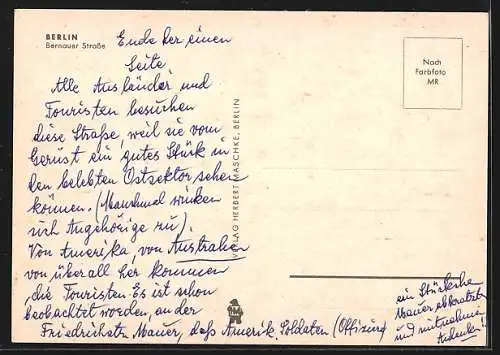 BERLIN
Bernauer Straße
Ende der einen
Seite.
Alle Ausländer und
Touristen besuchen
diese Straße, weil sie vom
Gerüst ein gutes Stück in
den belebten Ostsektor sehen
können. (Manchmal winken
sich Angehörige zu).
Von Amerika, von Australien
von überall her kommen
die Touristen. Es ist schon
beobachtet worden, an der
Friedrichstr. Mauer, daß Amerik. Soldaten (Offiziere)
ein Stückchen
Mauer abkratzten
und mitnahmen
Andenken!
VERLAG HERBERT MASCHKE, BERLIN
Nach
Farbfoto
MR
HM